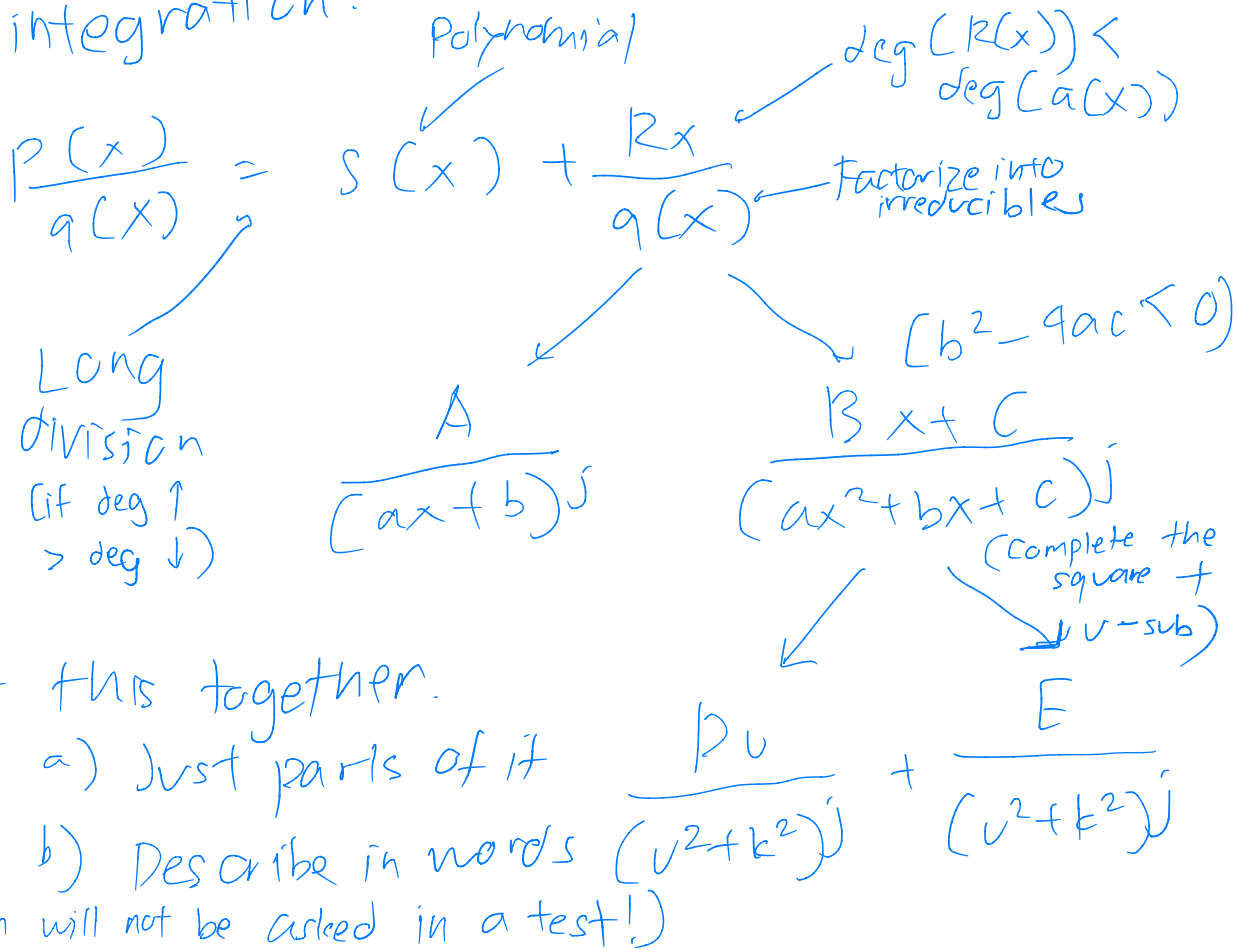 integration.
Polynomial
deg (R(x)) <
deg (q(x))
P(x)/q(x) = S(x) + Rx/q(x)
Factorize into
irreducibles
Long
division
(if deg ↑
> deg ↓)
(b² - 4ac < 0)
A/(ax+b)^j
Bx+C/(ax²+bx+c)^j
(complete the
square +
u-sub)
this together.
a) Just parts of it
b) Describe in words
Du/(u²+k²)^j + E/(u²+k²)^j
will not be asked in a test!)